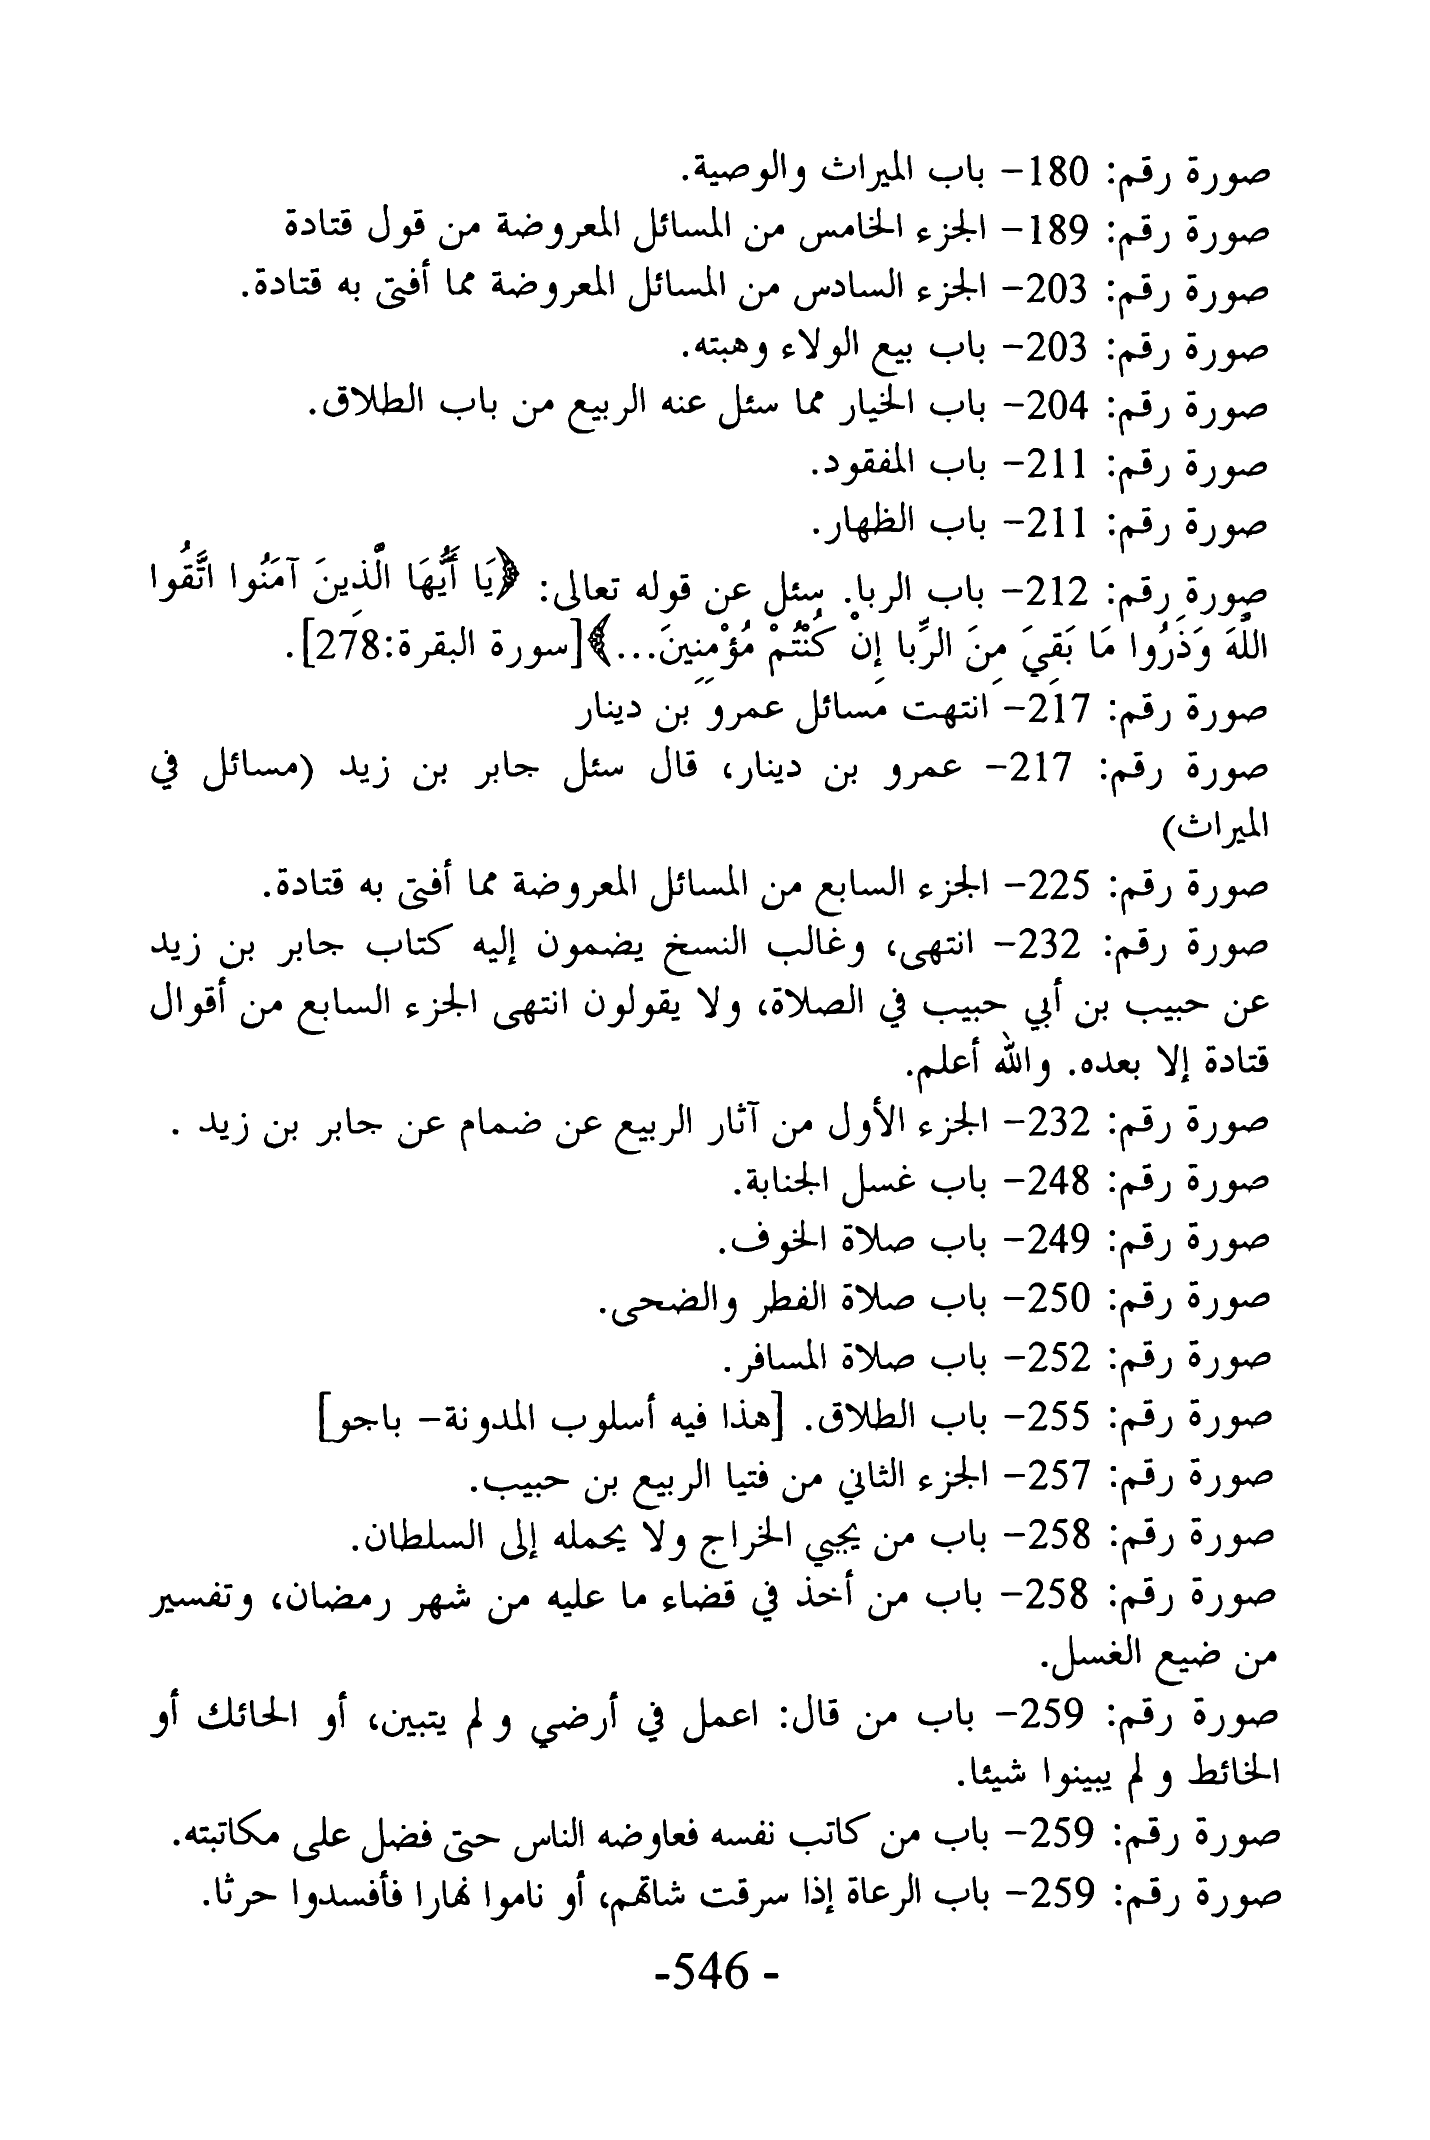 صورة رقم: 180- باب الميراث والوصية.
صورة رقم: 189- الجزء الخامس من المسائل المعروضة من قول قتادة
صورة رقم: 203- الجزء السادس من المسائل المعروضة مما أفتى به قتادة.
صورة رقم: 203- باب بيع الولاء وهبته.
صورة رقم: 204- باب الخيار مما سئل عنه الربيع من باب الطلاق.
صورة رقم: 211- باب المفقود.
صورة رقم: 211- باب الظهار.
صورة رقم: 212- باب الربا. سئل عن قوله تعالى: ﴿يَا أَيُّهَا الَّذِينَ آمَنُوا اتَّقُوا
اللَّهَ وَذَرُوا مَا بَقِيَ مِنَ الرِّبا إِنْ كُنْتُمْ مُؤْمِنِينَ...﴾[سورة البقرة:278].
صورة رقم: 217- انتهت مسائل عمرو بن دينار
صورة رقم: 217- عمرو بن دينار، قال سئل جابر بن زيد (مسائل في
الميراث)
صورة رقم: 225- الجزء السابع من المسائل المعروضة مما أفتى به قتادة.
صورة رقم: 232- انتهى، وغالب النسخ يضمون إليه كتاب جابر بن زيد
عن حبيب بن أبي حبيب في الصلاة، ولا يقولون انتهى الجزء السابع من أقوال
قتادة إلا بعده. والله أعلم.
صورة رقم: 232- الجزء الأول من آثار الربيع عن ضمام عن جابر بن زيد .
صورة رقم: 248- باب غسل الجنابة.
صورة رقم: 249- باب صلاة الخوف.
صورة رقم: 250- باب صلاة الفطر والضحى.
صورة رقم: 252- باب صلاة المسافر.
صورة رقم: 255- باب الطلاق. [هذا فيه أسلوب المدونة- باجو]
صورة رقم: 257- الجزء الثاني من فتيا الربيع بن حبيب.
صورة رقم: 258- باب من يجبي الخراج ولا يحمله إلى السلطان.
صورة رقم: 258- باب من أخذ في قضاء ما عليه من شهر رمضان، وتفسير
من ضيع الغسل.
صورة رقم: 259- باب من قال: اعمل في أرضي ولم يتبين، أو الحائك أو
الخائط ولم يبينوا شيئا.
صورة رقم: 259- باب من كاتب نفسه فعاوضه الناس حتى فضل على مكاتبته.
صورة رقم: 259- باب الرعاة إذا سرقت شاتهم، أو ناموا نهارا فأفسدوا حرثا.
-546 -